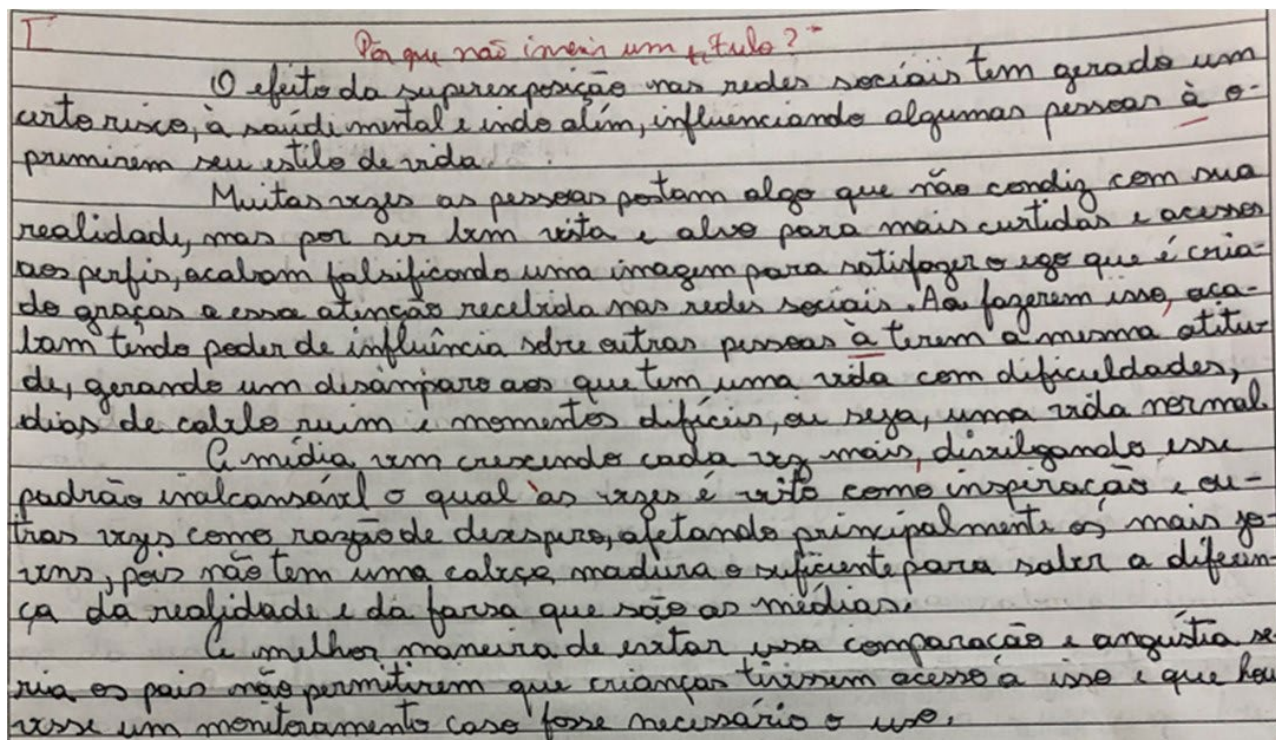 I
Por que não inserir um título?
O efeito da superexposição nas redes sociais tem gerado um
certo risco, à saúde mental e indo além, influenciando algumas pessoas à o-
primirem seu estilo de vida.
Muitas vezes as pessoas postam algo que não condiz com sua
realidade, mas por ser bem vista e alvo para mais curtidas e acessos
aos perfis, acabam falsificando uma imagem para satisfazer o ego que é cria-
do graças a essa atenção recebida nas redes sociais. Ao fazerem isso, aca-
bam tendo poder de influência sobre outras pessoas à terem a mesma atitu-
de, gerando um disâmparo aos que tem uma vida com dificuldades,
dias de cabelo ruim e momentos difíceis, ou seja, uma vida normal.
A mídia vem crescendo cada vez mais, divulgando esse
padrão inalcansável o qual às vezes é visto como inspiração e ou-
tras vezes como razão de desespero, afetando principalmente os mais jo-
vens, pois não tem uma cabeça madura o suficiente para saber a diferen-
ça da realidade e da farsa que são as médias.
A melhor maneira de evitar essa comparação e angústia se-
ria os pais não permitirem que crianças tivessem acesso à isso e que hou
vesse um monitoramento caso fosse necessário o uso.